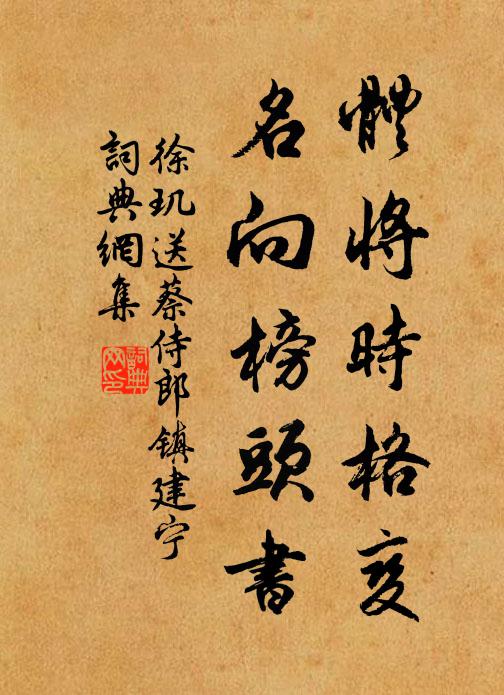 體將時格变
名向榜頭書
徐玑送蔡侍郎镇建宁
詞典網集
詞典网印